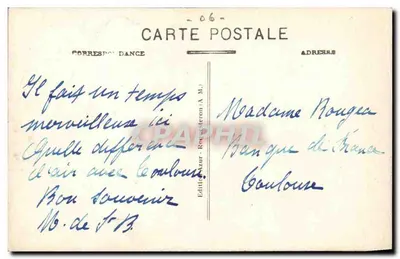 - 06 -
CARTE POSTALE
CORRESPONDANCE
ADRESSE
Il fait un temps
merveilleux ici
Quelle différence
d'air avec Toulouse.
Bon souvenir
M. de St B.
Madame Rougea
Banque de France
Toulouse